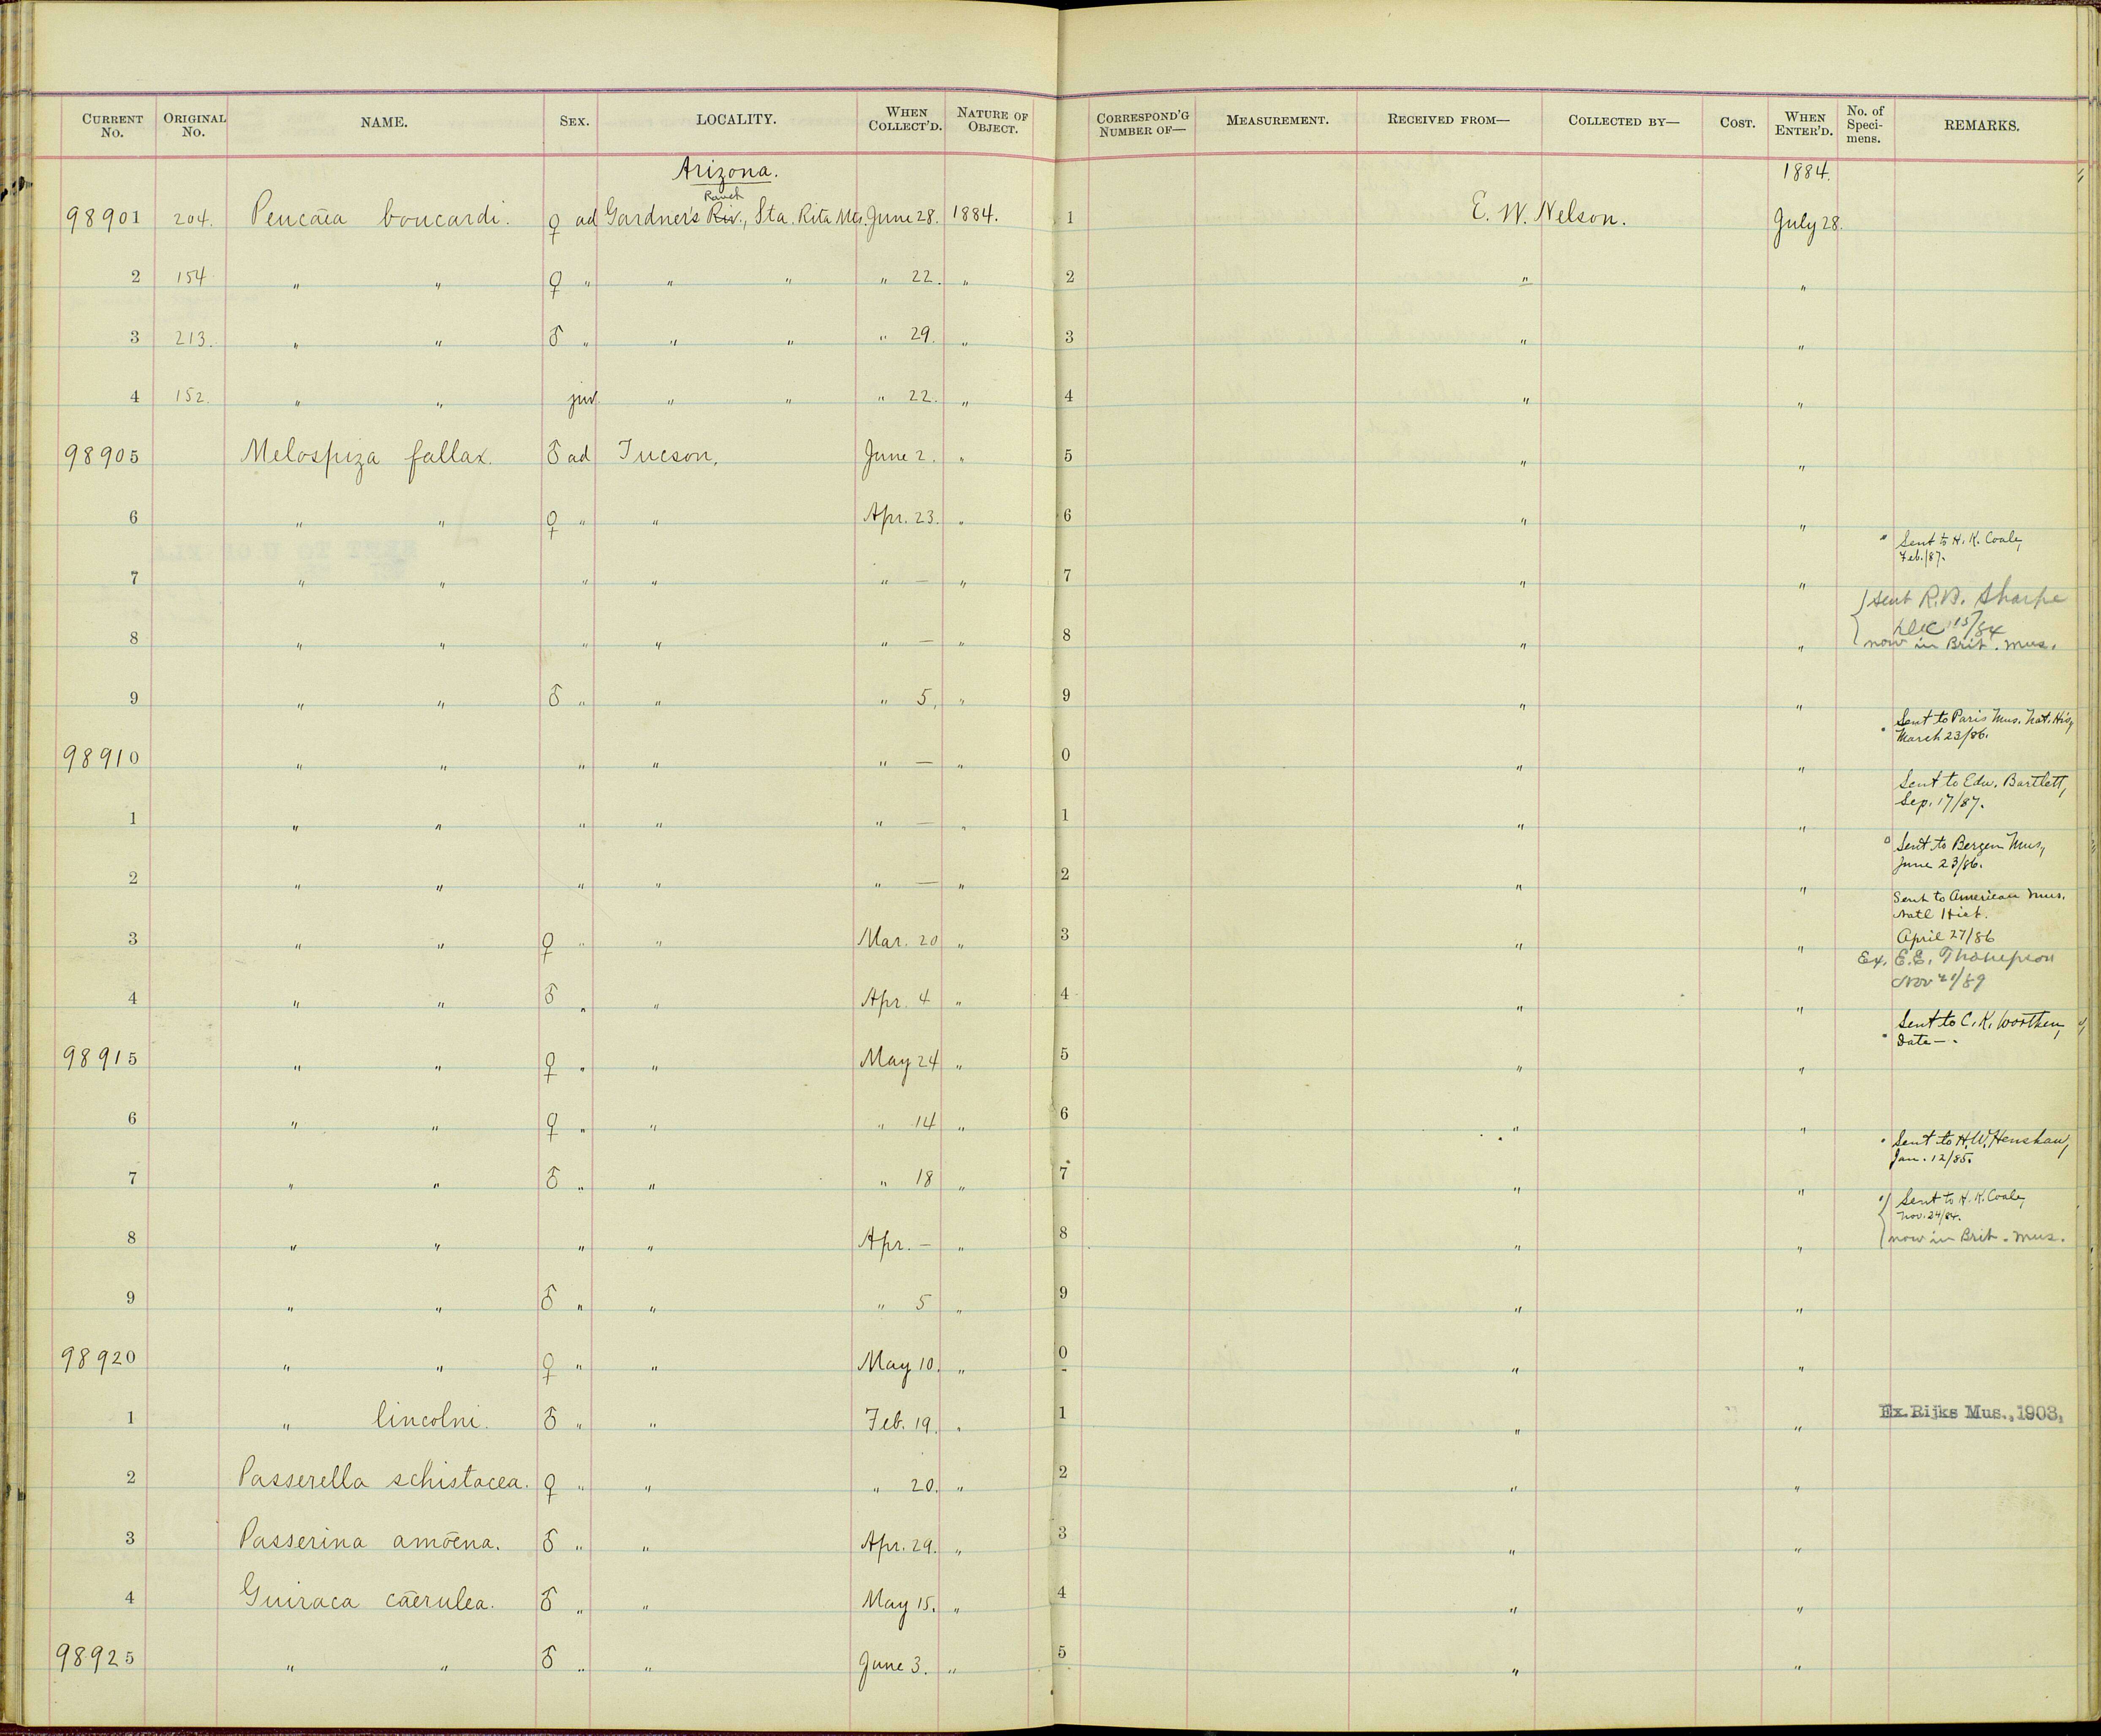 CURRENT No. ORIGINAL No. NAME. SEX. LOCALITY. WHEN COLLECT'D. NATURE OF OBJECT. CORRESPOND'G NUMBER OF— MEASUREMENT. RECEIVED FROM— COLLECTED BY— COST. WHEN ENTER'D. No. of Speci- mens. REMARKS.
Arizona. 1884.
Ranch
98901 204. Peucæa boucardi. ♀ ad Gardner's Riv., Sta. Rita Mts. June 28. 1884. 1 E. W. Nelson. July 28.
2 154 " " ♀ " " " " 22. " 2 " "
3 213. " " ♂ " " " " 29. " 3 " "
4 152. " " juv. " " " 22. " 4 " "
98905 Melospiza fallax. ♂ ad Tucson, June 2. " 5 " "
6 " " ♀ " " Apr. 23. " 6 " "
" Sent to H. K. Coale,
Feb./87.
7 " " " " " — " 7 " "
Sent R. B. Sharpe
Dec 15/84
8 " " " " " — " 8 " " now in Brit. Mus.
9 " " ♂ " " " 5, " 9 " "
Sent to Paris Mus. Nat. His,
March 23/86.
98910 " " " " " — " 0 " "
Sent to Edw. Bartlett,
Sep. 17/87.
1 " " " " " — " 1 " "
Sent to Bergen Mus,
June 23/86.
2 " " " " " — " 2 " "
Sent to American Mus.
Natl Hist.
3 " " ♀ " " Mar. 20 " 3 " " April 27/86
Ex. E. E. Thompson
Nov 21/89
4 " " ♂ " " Apr. 4 " 4 " "
Sent to C. K. Worthen,
Date — .
98915 " " ♀ " " May 24 " 5 " "
6 " " ♀ " " " 14 " 6 " "
Sent to H. W. Henshaw,
Jan. 12/85.
7 " " ♂ " " " 18 " 7 " "
Sent to H. K. Coale,
Nov. 24/84.
8 " " " " Apr. — " 8 " " now in Brit. Mus.
9 " " ♂ " " " 5 " 9 " "
98920 " " ♀ " " May 10. " 0 " "
1 " lincolni. ♂ " " Feb. 19. " 1 " " Ex. Rijks Mus., 1903,
2 Passerella schistacea. ♀ " " " 20. " 2 " "
3 Passerina amœna. ♂ " " Apr. 29. " 3 " "
4 Guiraca cærulea. ♂ " " May 15. " 4 " "
98925 " " ♂ " " June 3. " 5 " "